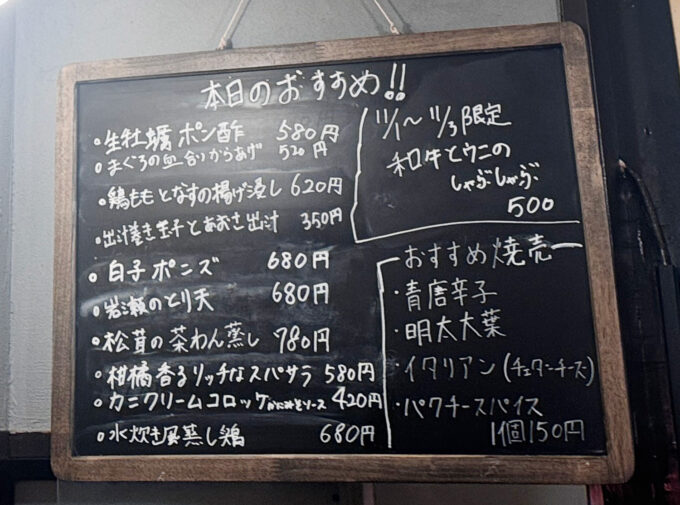 本日のおすすめ!!
・生牡蠣ポン酢 580円
・まぐろの血合いからあげ 520円
・鶏ももとなすの揚げ浸し 620円
・出汁巻き玉子とあおさ出汁 350円
・白子ポンズ 680円
・岩瀬のとり天 680円
・松茸の茶わん蒸し 780円
・柑橘香るリッチなスパサラ 580円
・カニクリームコロッケかにみそソース 420円
・水炊き風蒸し鶏 680円
11/1〜11/3限定
和牛とウニの
しゃぶしゃぶ
500
おすすめ焼売
・青唐辛子
・明太大葉
・イタリアン(チェダーチーズ)
・パクチースパイス
1個150円